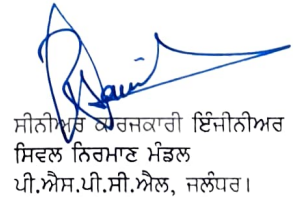 ਸੀਨੀਅਰ ਕਾਰਜਕਾਰੀ ਇੰਜੀਨੀਅਰ
ਸਿਵਲ ਨਿਰਮਾਣ ਮੰਡਲ
ਪੀ.ਐਸ.ਪੀ.ਸੀ.ਐਲ, ਜਲੰਧਰ।